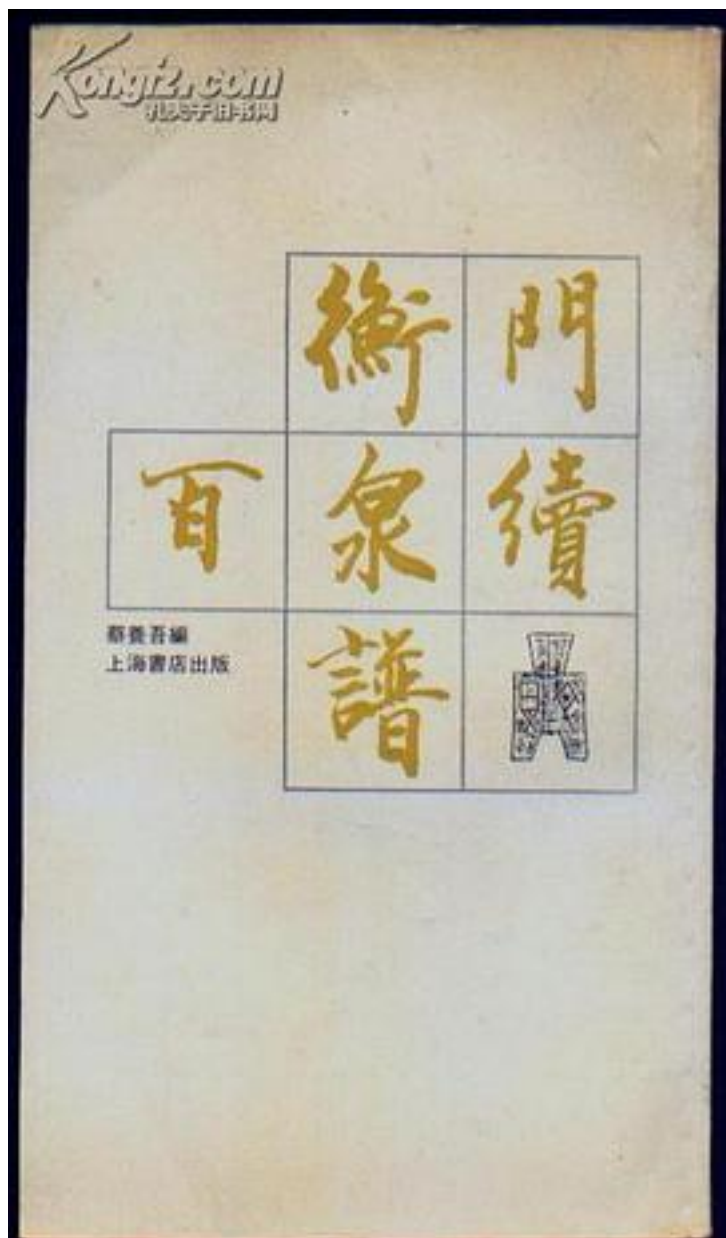 Kongfz.com
孔夫子旧书网
衡門
百泉續
譜
蔡養吾編
上海書店出版